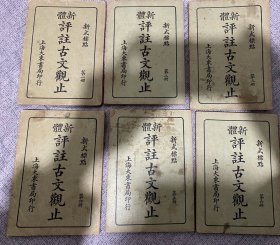 新式標點
新體
評註古文觀止
上海大東書局印行
新式標點
新體
評註古文觀止
上海大東書局印行
新式標點
新體
評註古文觀止
上海大東書局印行
新式標點
新體
評註古文觀止
上海大東書局印行
新式標點
新體
評註古文觀止
上海大東書局印行
新式標點
新體
評註古文觀止
上海大東書局印行